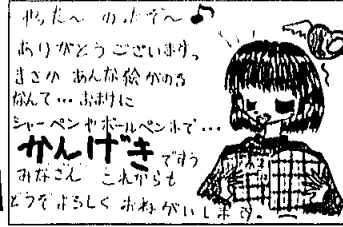 やったー のったぞー♪
ありがとうございます。
まさか あんな絵がのる
なんて…おまけに
シャーペンやボールペンまで…
かんげきですぅ
みなさん これからも
どうぞよろしくおねがいします。